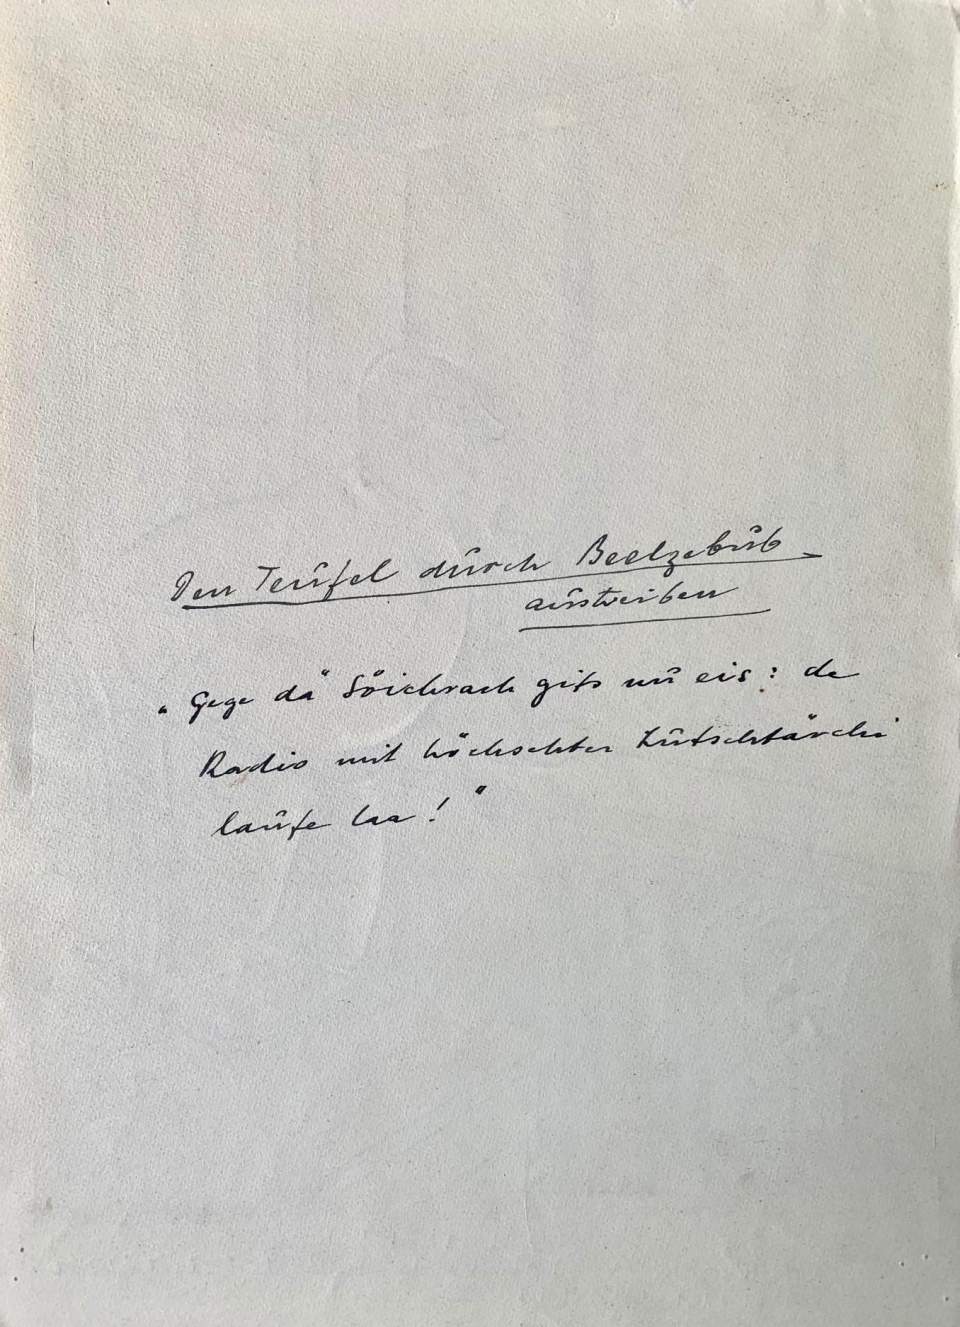 Den Teufel durch Beelzebub
austreiben
"Gege dä Söichrach gits nu eis: de
Radio mit höchschter Lutschtärchi
laufe laa!"